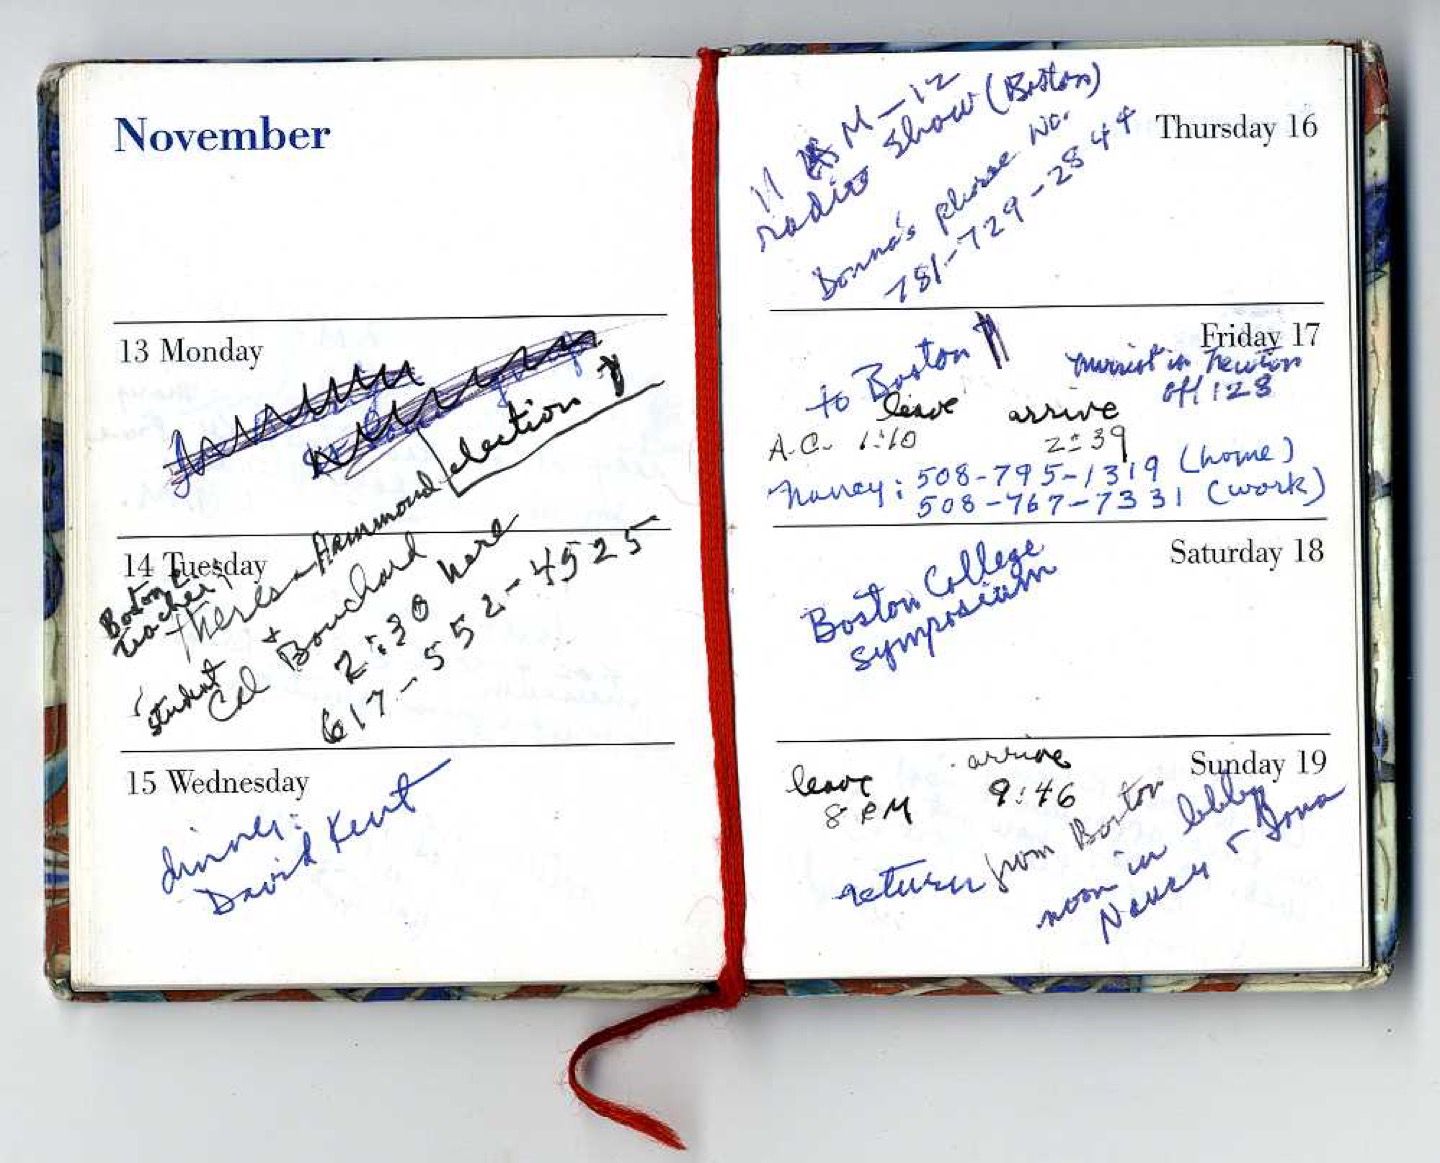 November
13 Monday
election
14 Tuesday
Boston
teacher
Theresa Hammond
+
student
Cal Bouchard
2:30 here
617-552-4525
15 Wednesday
dinner:
David Kent
Thursday 16
11 AM-12
radio show (Boston)
Donna's phone no.
781-729-2844
Friday 17
to Boston
Marriot in Newton
off 128
leave arrive
A.C. 1:10 2:39
Nancy: 508-795-1319 (home)
508-767-7331 (work)
Saturday 18
Boston College
Symposium
Sunday 19
leave arrive
8 PM 9:46
return from Boston
noon in lobby
Nancy + Dona